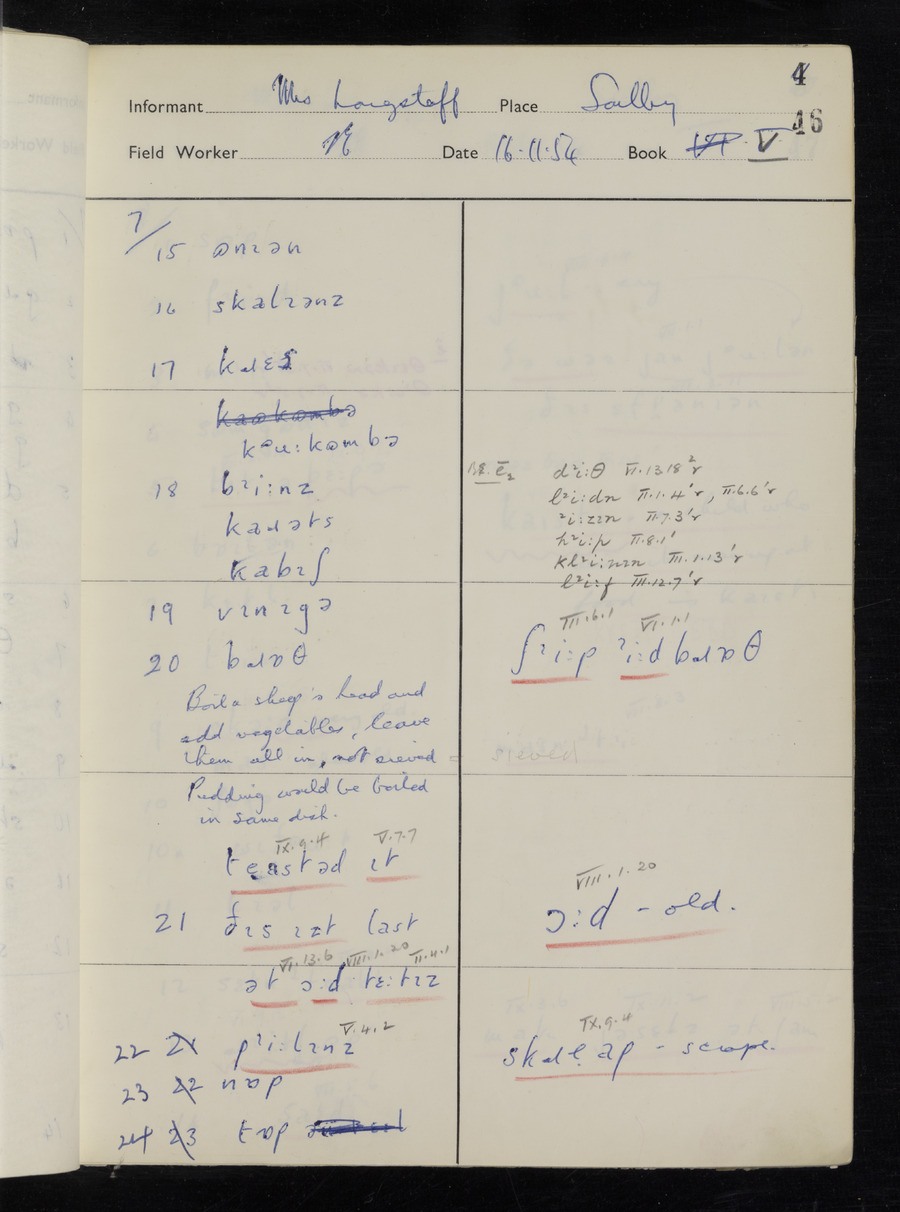 4
Informant Mrs Longstaff Place Soulby
46
Field Worker Date 16.11.54 Book VI V
7/15 ɷnɪən
16 skalɪənz
17 kɹɛs
kaɷkɷmbə
kᵊu:kɷmbə
18 bᶦi:nz
kaɹəts
kabɪʃ
19 vɪnɪgə
20 bɹɒθ
Boil a sheep's head and
add vegetables, leave
them all in, not sieved =
Pudding would be boiled
in same dish.
IX.9.4 V.7.7
ɪt
21 ðɪs ɪzt last
VI.13.6 VIII.1.20 II.4.1
ət ɔ:d tɛ:tɪz
V.4.2
22 21 pᶦi:lɪnz
23 22 nɒp
24 23 tɒp
ME. ē₂ dᶦi:θ VI.13.18²r
lᶦi:dn II.1.4'r, II.6.6'r
ᶦi:zɪn II.7.3'r
hᶦi:p II.8.1'
klᶦi:nɪn III.1.13'r
lᶦi:f III.12.7'r
III.6.1 VI.1.1
ʃᶦi:p ᶦi:d bɹɒθ
sieved
VIII.1.20
ɔ:d - old.
IX.9.4
- scrape.